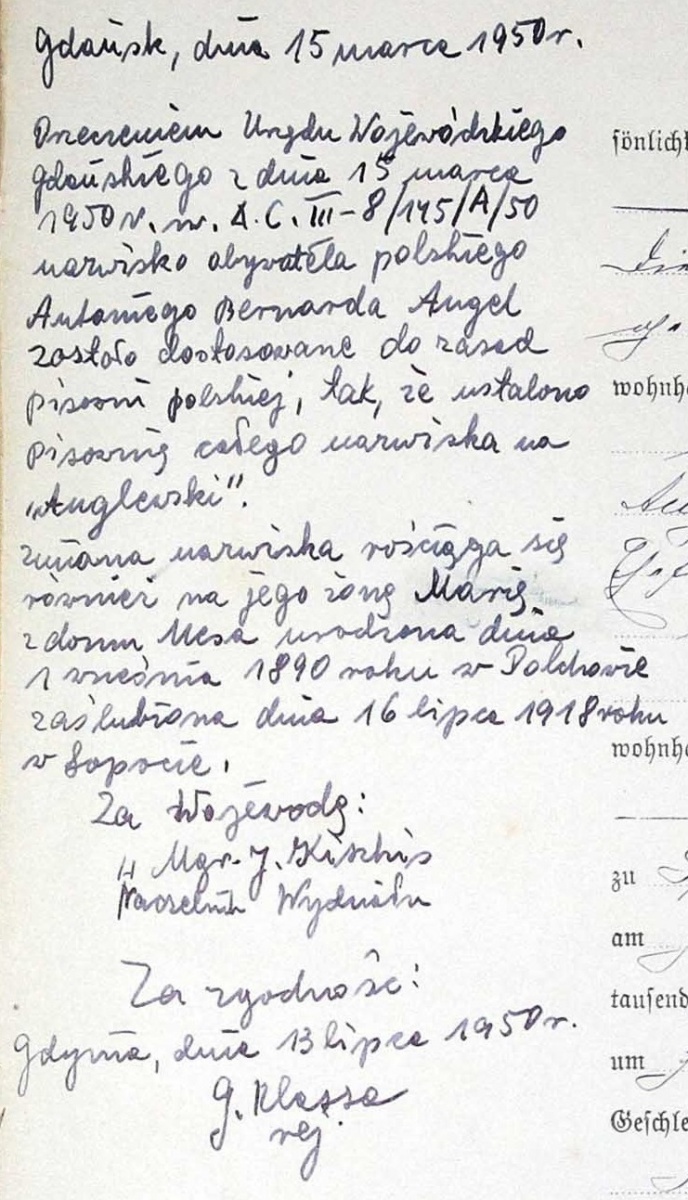 Gdańsk, dnia 15 marca 1950 r.
Orzeczeniem Urzędu Wojewódzkiego
Gdańskiego z dnia 15 marca
1950 r. nr. A.C. III-8/145/A/50
nazwisko obywatela polskiego
Antoniego Bernarda Angel
zostało dostosowane do zasad
pisowni polskiej, tak, że ustalono
pisownię całego nazwiska na
„Anglewski".
zmiana nazwiska rościąga się
również na jego żonę Marię
z domu Mesa urodzona dnia
1 września 1890 roku w Połchowie
zaślubiona dnia 16 lipca 1918 roku
w Sopocie.
Za Wojewodę:
Mgr. J. Kischis
Naczelnik Wydziału
Za zgodność:
Gdynia, dnia 13 lipca 1950 r.
G. Klassa
rej.
sönlich
wohnha
wohnha
zu
am
tausend
um
Geschle